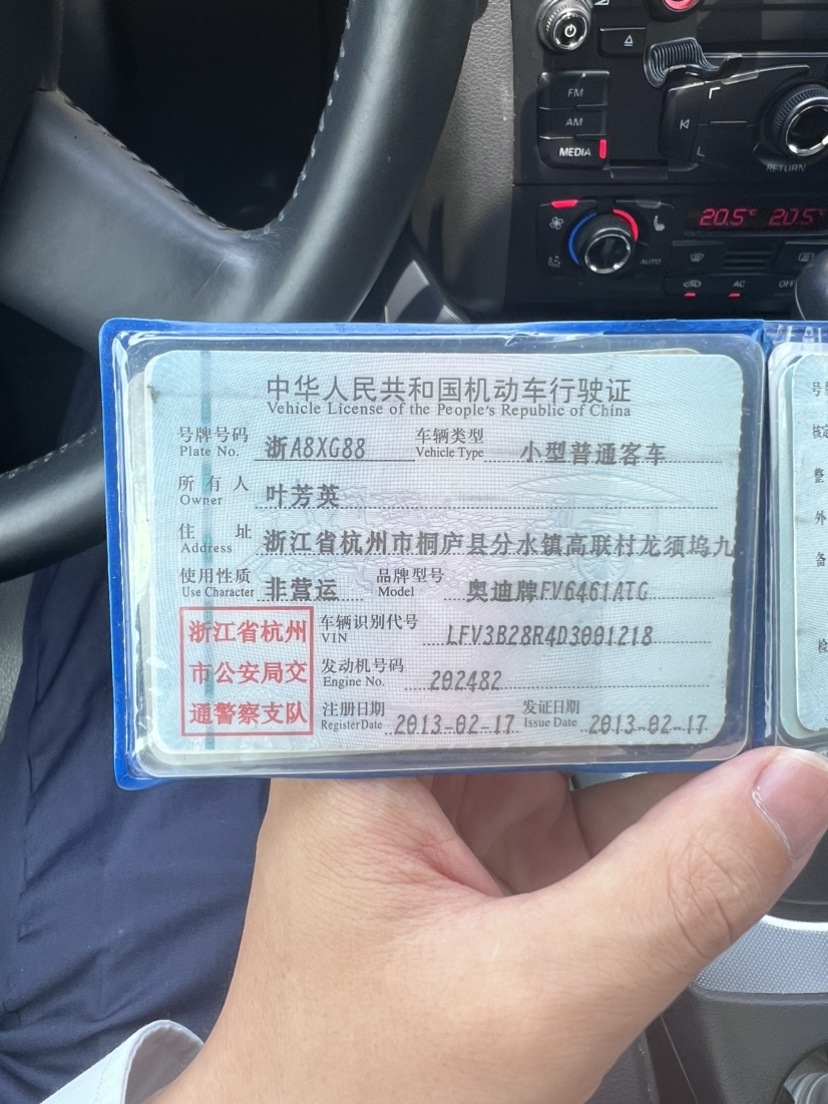 FM
AM
MEDIA
RETURN
20.5°C 20.5°C
AUTO
AC
OFF
中华人民共和国机动车行驶证
Vehicle License of the People's Republic of China
号牌号码 浙A8XG88 车辆类型 小型普通客车
Plate No. Vehicle Type
所有人 叶芳英
Owner
住址 浙江省杭州市桐庐县分水镇高联村龙须坞九
Address
使用性质 非营运 品牌型号 奥迪牌FV6461ATG
Use Character Model
浙江省杭州 车辆识别代号 LFV3B28R4D3001218
VIN
市公安局交 发动机号码 202482
Engine No.
通警察支队 注册日期 2013-02-17 发证日期 2013-02-17
Register Date Issue Date
号
核定
整
外
备
检